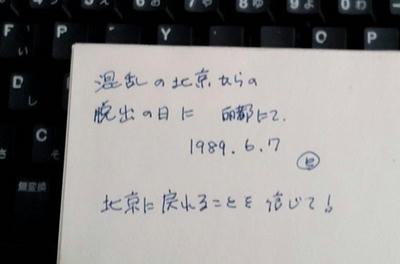 混乱の北京からの
脱出の日に 丽都にて.
1989.6.7
北京に戻れることを信じて!
D
し
C
無変換